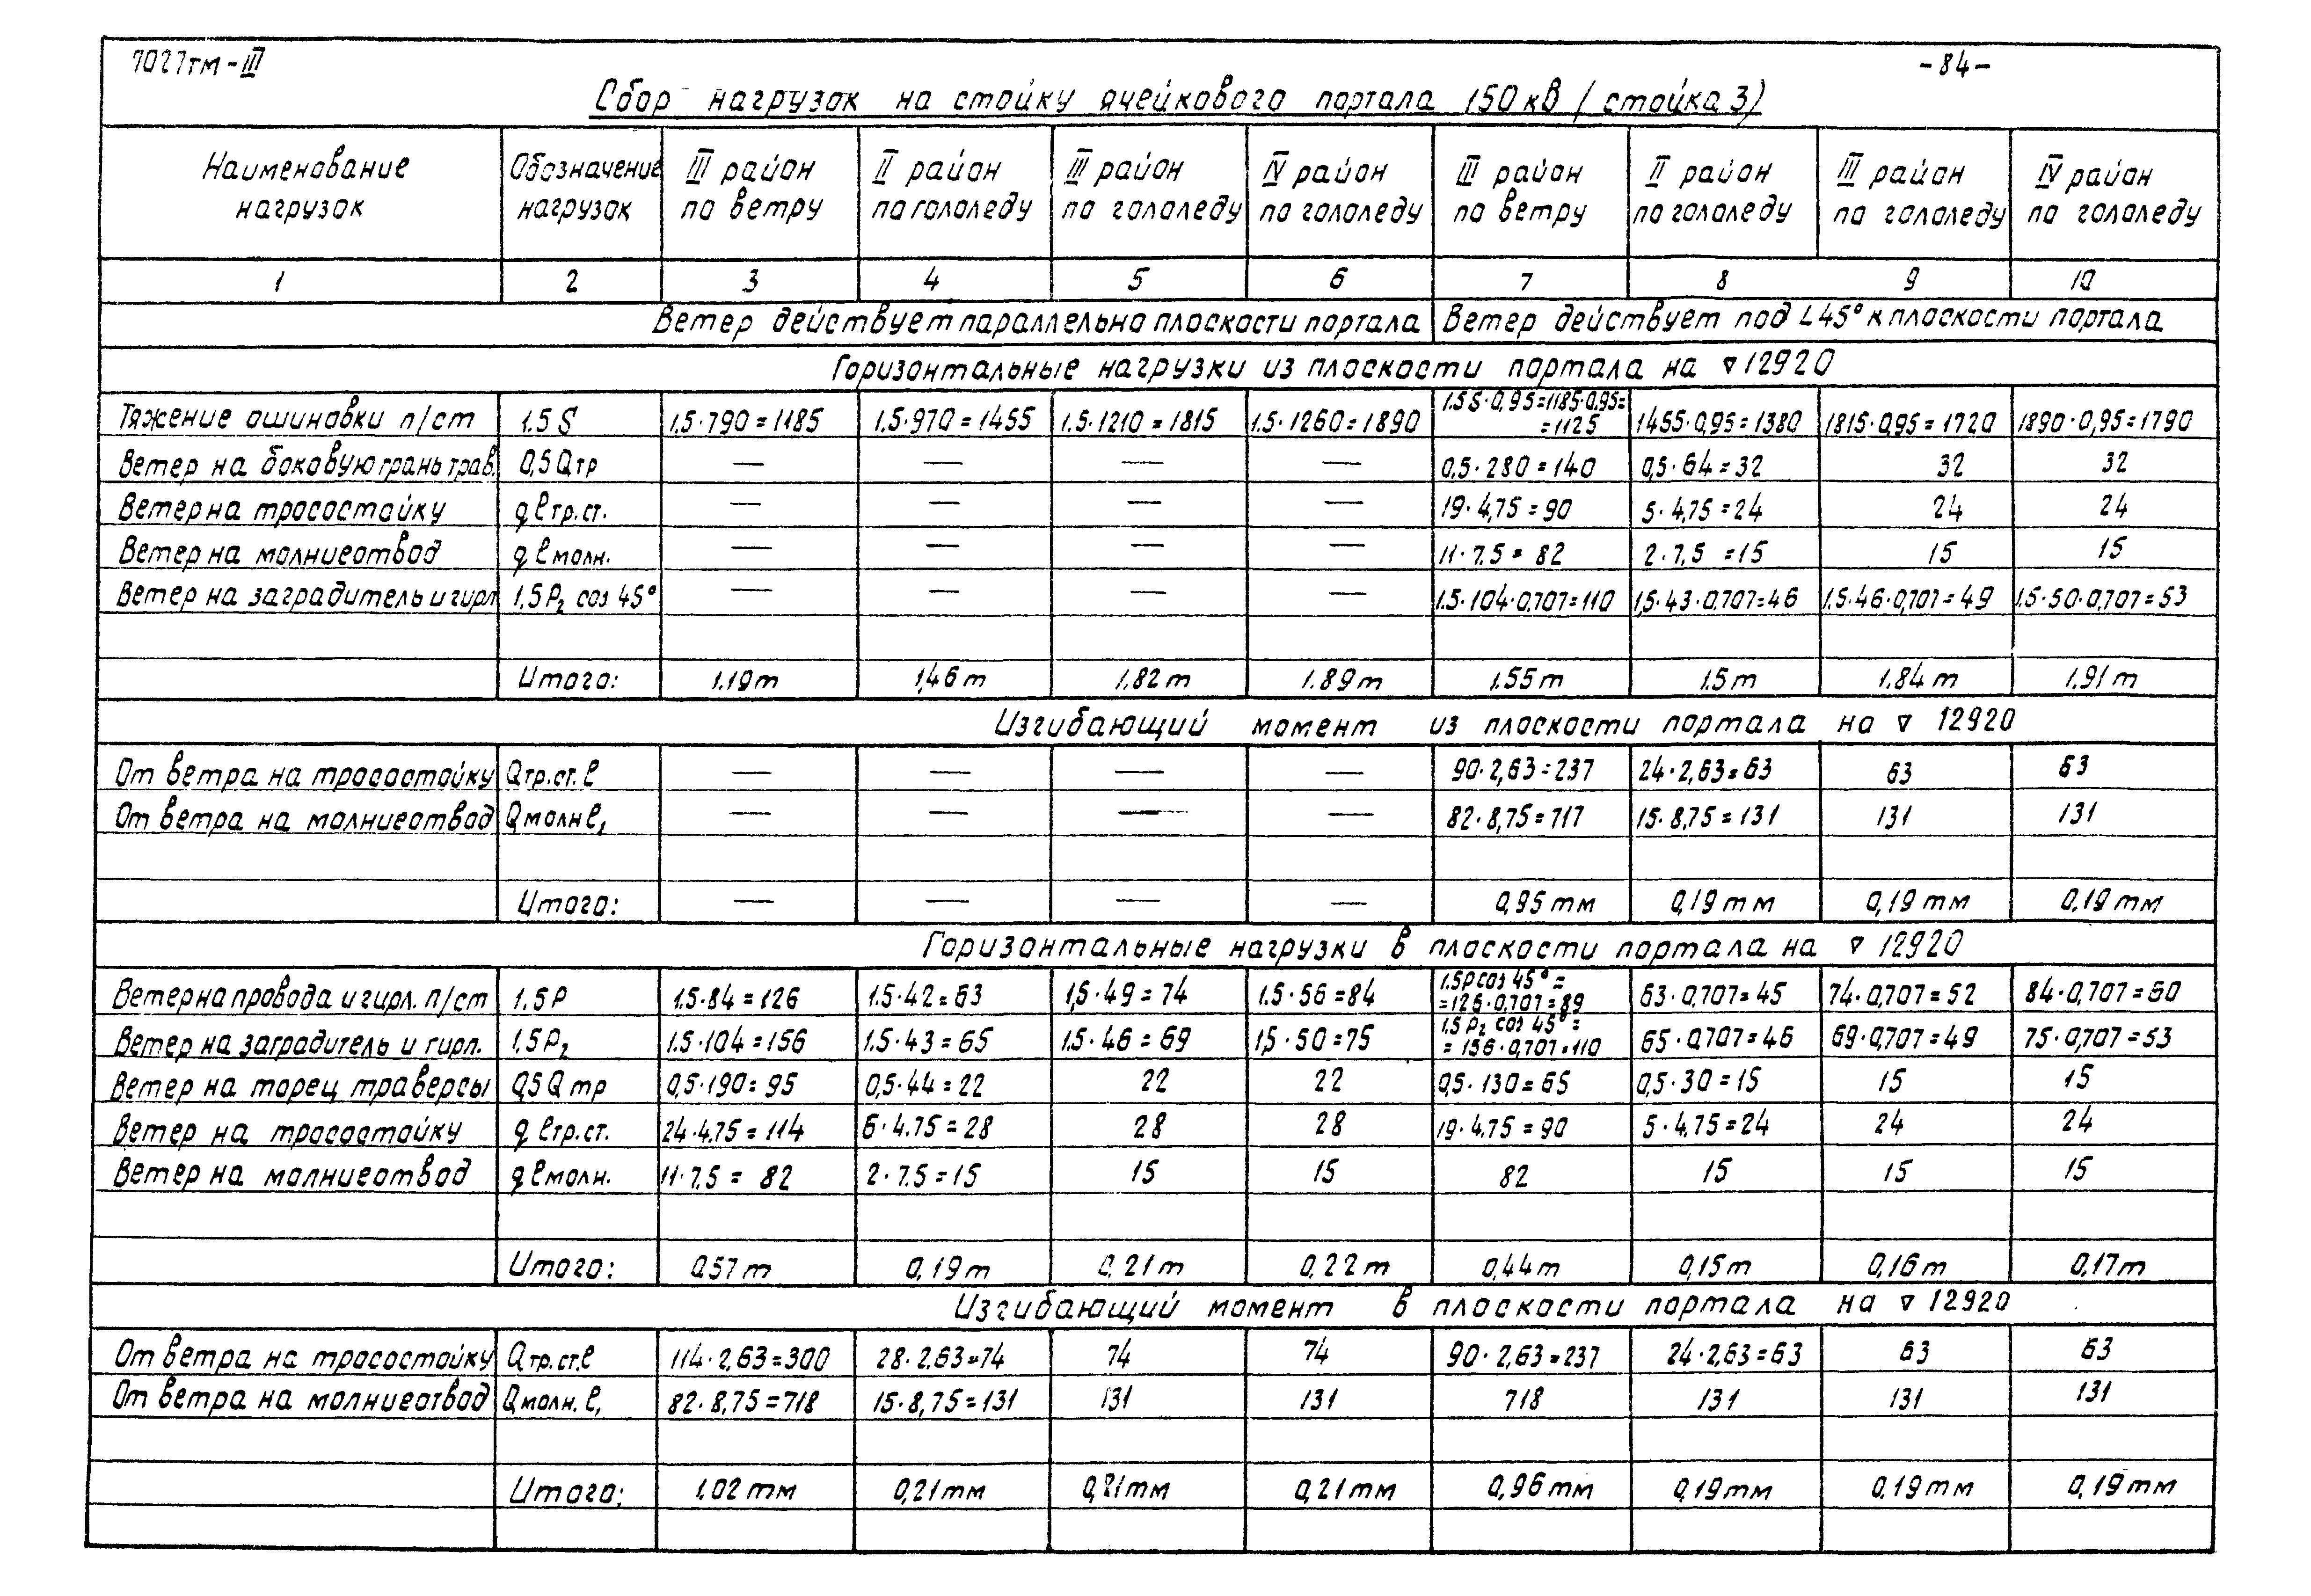 7027тм-III
-84-
Сбор нагрузок на стойку ячейкового портала 150 кВ (стойка 3)
Наименование нагрузок | Обозначение нагрузок | III район по ветру | II район по гололеду | III район по гололеду | IV район по гололеду | III район по ветру | II район по гололеду | III район по гололеду | IV район по гололеду
1 | 2 | 3 | 4 | 5 | 6 | 7 | 8 | 9 | 10
Ветер действует параллельно плоскости портала | Ветер действует под ∠45° к плоскости портала
Горизонтальные нагрузки из плоскости портала на ▿ 12920
Тяжение ошиновки п/ст | 1.5 S | 1.5·790=1185 | 1.5·970=1455 | 1.5·1210=1815 | 1.5·1260=1890 | 1.5S·0,95=1185·0,95= =1125 | 1455·0,95=1380 | 1815·0,95=1720 | 1890·0,95=1790
Ветер на боковую грань трав. | 0,5 Qтр | — | — | — | — | 0,5·280=140 | 0,5·64=32 | 32 | 32
Ветер на тросостойку | qℓтр.ст. | — | — | — | — | 19·4,75=90 | 5·4,75=24 | 24 | 24
Ветер на молниеотвод | qℓмолн. | — | — | — | — | 11·7.5=82 | 2·7,5=15 | 15 | 15
Ветер на заградитель и гирл | 1,5P₂ cos 45° | — | — | — | — | 1.5·104·0,707=110 | 1,5·43·0,707=46 | 1.5·46·0,707=49 | 1.5·50·0,707=53
Итого: | 1.19т | 1,46т | 1.82т | 1.89т | 1.55т | 1.5т | 1.84т | 1.91т
Изгибающий момент из плоскости портала на ▿ 12920
От ветра на тросостойку | Qтр.ст.ℓ | — | — | — | — | 90·2,63=237 | 24·2,63=63 | 63 | 63
От ветра на молниеотвод | Qмолнℓ₁ | — | — | — | — | 82·8,75=717 | 15·8,75=131 | 131 | 131
Итого: | — | — | — | — | 0,95тм | 0,19тм | 0,19тм | 0,19тм
Горизонтальные нагрузки в плоскости портала на ▿ 12920
Ветер на провода и гирл. п/ст | 1.5P | 1.5·84=126 | 1.5·42=63 | 1,5·49=74 | 1.5·56=84 | 1.5P cos 45°= =126·0,707=89 | 63·0,707=45 | 74·0,707=52 | 84·0,707=60
Ветер на заградитель и гирл. | 1,5P₂ | 1.5·104=156 | 1.5·43=65 | 1.5·46=69 | 1,5·50=75 | 1,5 P₂ cos 45°= =156·0,707=110 | 65·0,707=46 | 69·0,707=49 | 75·0,707=53
Ветер на торец траверсы | 0,5Q тр | 0,5·190=95 | 0,5·44=22 | 22 | 22 | 0,5·130=65 | 0,5·30=15 | 15 | 15
Ветер на тросостойку | qℓтр.ст. | 24·4.75=114 | 6·4.75=28 | 28 | 28 | 19·4.75=90 | 5·4.75=24 | 24 | 24
Ветер на молниеотвод | qℓмолн. | 11·7,5=82 | 2·7.5=15 | 15 | 15 | 82 | 15 | 15 | 15
Итого: | 0,57т | 0,19т | 0,21т | 0,22т | 0,44т | 0,15т | 0,16т | 0,17т
Изгибающий момент в плоскости портала на ▿ 12920
От ветра на тросостойку | Qтр.ст.ℓ | 114·2,63=300 | 28·2,63=74 | 74 | 74 | 90·2,63=237 | 24·2,63=63 | 63 | 63
От ветра на молниеотвод | Qмолн.ℓ₁ | 82·8,75=718 | 15·8,75=131 | 131 | 131 | 718 | 131 | 131 | 131
Итого: | 1.02тм | 0,21тм | 0,21тм | 0,21тм | 0,96тм | 0,19тм | 0.19тм | 0,19тм